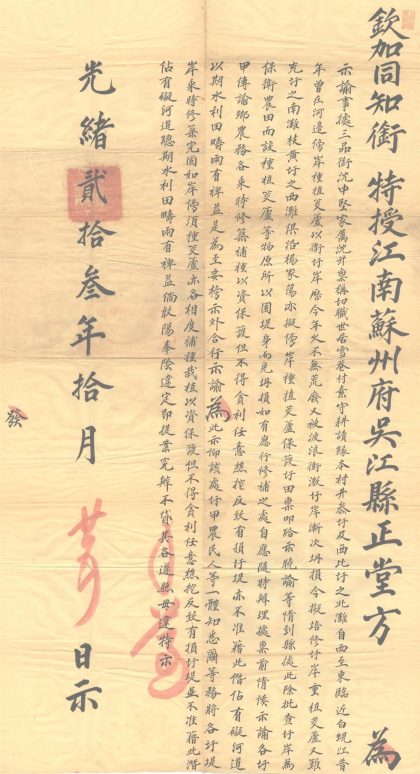 欽加同知銜特授江南蘇州府吳江縣正堂方 為
示諭事據三品銜沈中堅家屬沈升稟稱切職世居雪巷村素守耕讀緣本村井忝圩及西北圩之北灘自西至東臨近白蜆江昔
年曾在河邊傍岸種植茭蘆以衛圩岸歷今年久不無荒廢又被波浪衝激圩岸漸次坍損今擬培修圩岸重植茭蘆又類
充圩之南灘枝黃圩之西灘俱沿楊家蕩亦擬傍岸種植茭蘆保護圩田稟叩給示曉諭等情到縣據此除批查圩岸為
保衛農田而設種植茭蘆等物原所以固堤身而免坍損如有應行修補之處自應隨時辦理據稟前情候示諭各圩
甲傳諭鄉農務各乘時修築補種以資保護但不得貪利任意攙挖反致有損圩堤亦不准藉此僭佔有礙河道
以期水利田疇兩有裨益是為至要榜示外合行示諭為此示仰該處圩甲農民人等一體知悉爾等務將各圩堤
岸乘時修築完固如岸傍須種茭蘆亦各相度補種栽植以資保護但不得貪利任意攙挖反致有損圩堤並不准藉此僭
佔有礙河道總期水利田疇兩有裨益倘敢陽奉陰違定即提案究辦不貸其各遵照毋違特示
光緒貳拾叁年拾月 日示
發